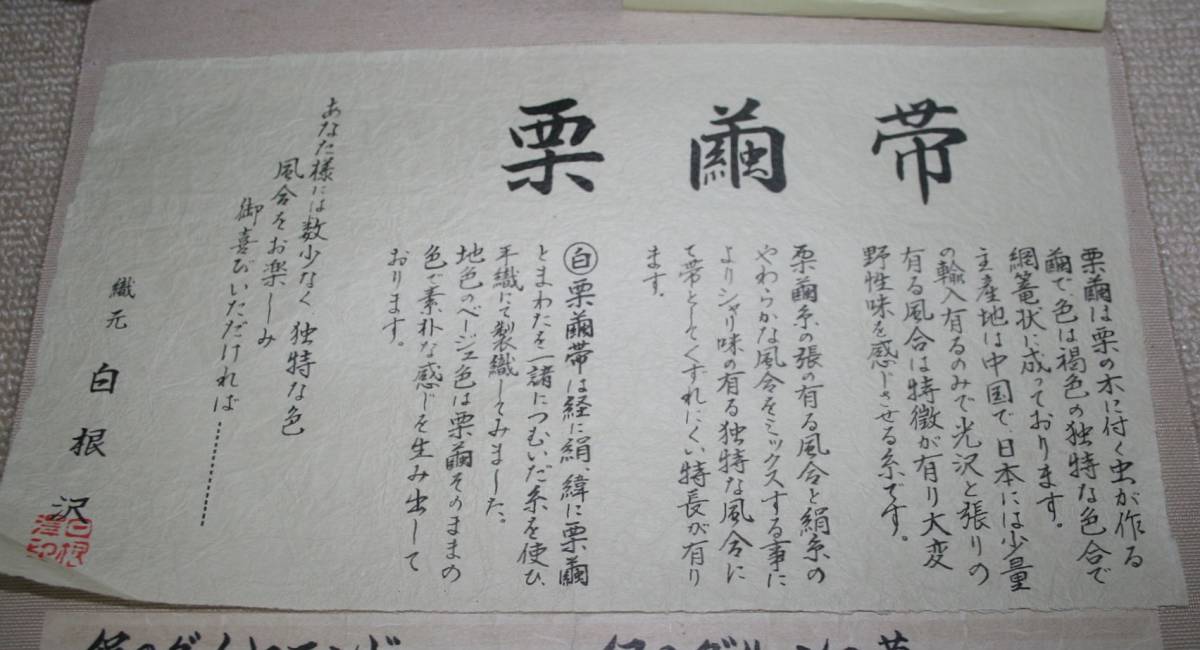 栗繭帯
栗繭は栗の木に付く虫が作る
繭で、色は褐色の独特な色合で
網篭状に成っております。
主産地は中国で、日本には少量
の輸入有るのみで光沢と張りの
有る風合は特徴が有り大変
野性味を感じさせる糸です。
栗繭糸の張の有る風合と絹糸の
やわらかな風合をミックスする事に
よりシャリ味の有る独特な風合に
て帯としてくずれにくい特長が有り
ます。
㊂栗繭帯は経に絹、緯に栗繭
とまわたを一諸につむいだ糸を使ひ、
手織にて製織してみました。
地色のベージュ色は栗繭そのままの
色で素朴な感じを生み出して
おります。
あなた様には数少なく、独特な色
風合をお楽しみ
御喜びいただければ………
織元 白根沢